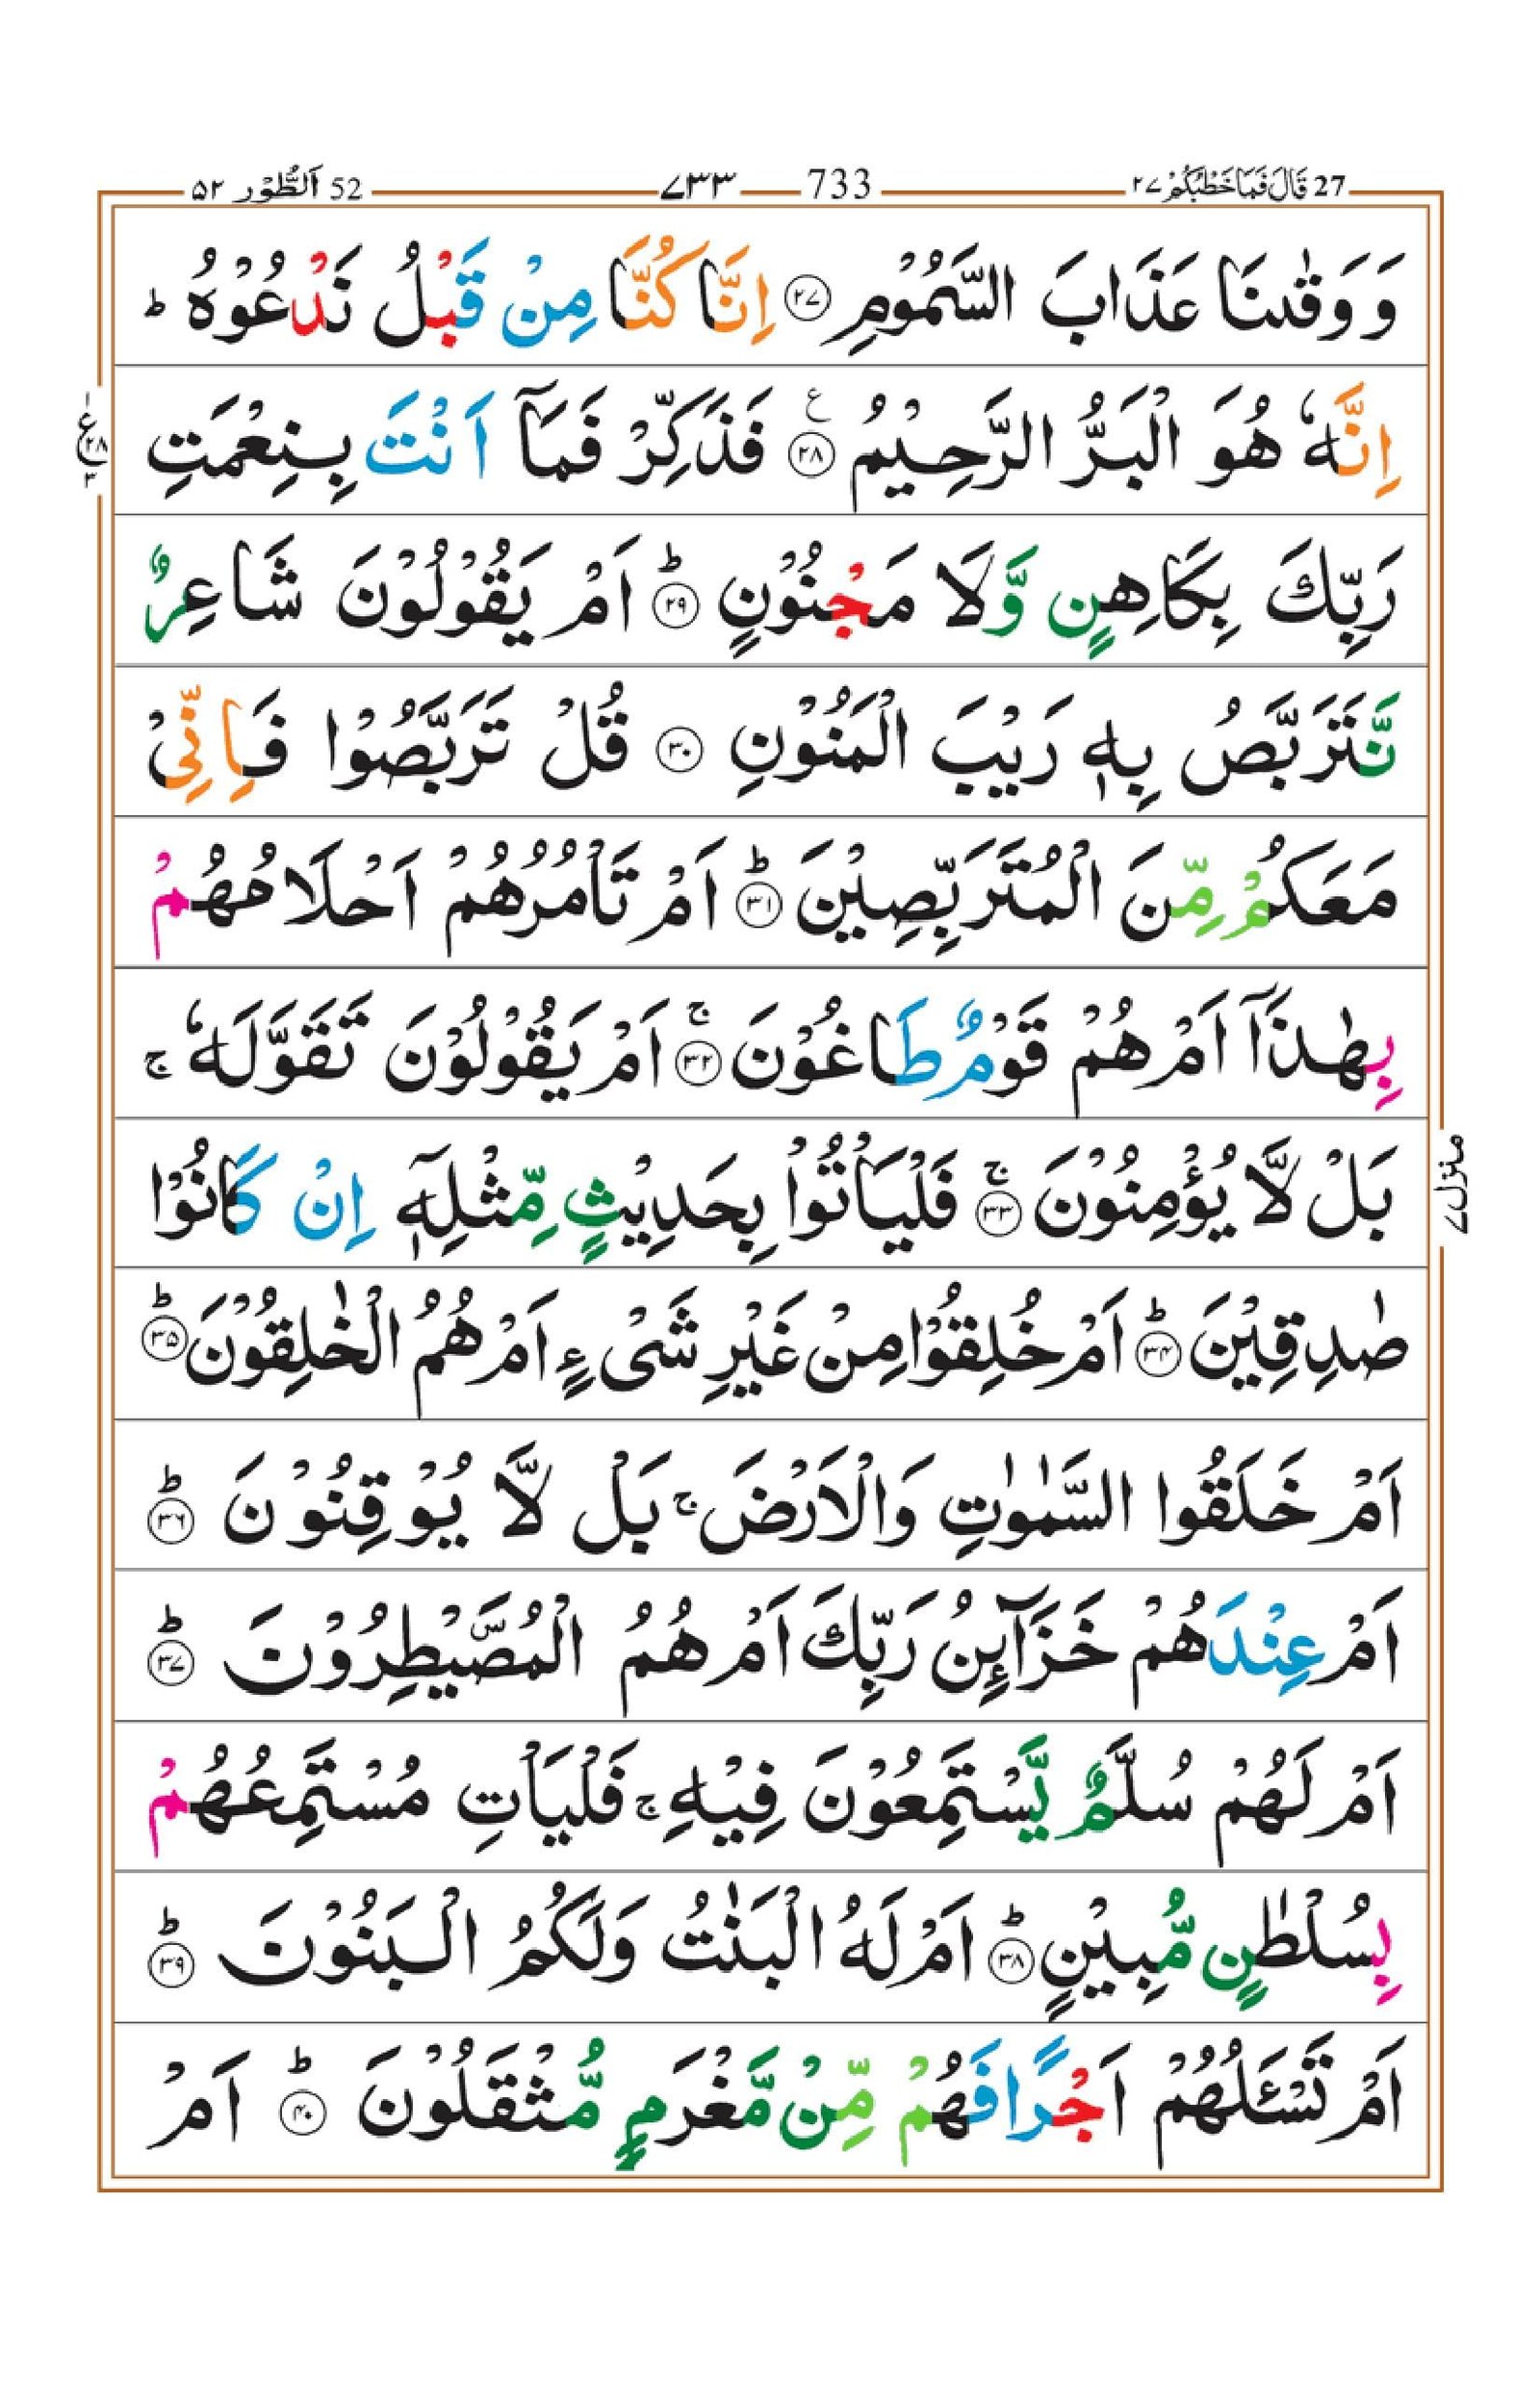 27 قَالَ فَمَا خَطْبُكُمْ ٢٧
733 ٧٣٣
52 اَلطُّوْر ٥٢
وَ وَقٰىنَا عَذَابَ السَّمُوْمِ ﴿٢٧﴾ اِنَّا كُنَّا مِنْ قَبْلُ نَدْعُوْهُ ؕ
اِنَّهٗ هُوَ الْبَرُّ الرَّحِيْمُ ﴿٢٨﴾ ع فَذَكِّرْ فَمَاۤ اَنْتَ بِنِعْمَتِ
١ ع ٢٨ ٣
رَبِّكَ بِكَاهِنٍ وَّلَا مَجْنُوْنٍ ؕ ﴿٢٩﴾ اَمْ يَقُوْلُوْنَ شَاعِرٌ
نَّتَرَبَّصُ بِهٖ رَيْبَ الْمَنُوْنِ ﴿٣٠﴾ قُلْ تَرَبَّصُوْا فَاِنِّىْ
مَعَكُمْ مِّنَ الْمُتَرَبِّصِيْنَ ؕ ﴿٣١﴾ اَمْ تَاْمُرُهُمْ اَحْلَامُهُمْ
بِهٰذَاۤ اَمْ هُمْ قَوْمٌ طَاغُوْنَ ۚ ﴿٣٢﴾ اَمْ يَقُوْلُوْنَ تَقَوَّلَهٗ ۚ
بَلْ لَّا يُؤْمِنُوْنَ ۚ ﴿٣٣﴾ فَلْيَاْتُوْا بِحَدِيْثٍ مِّثْلِهٖۤ اِنْ كَانُوْا
منزل ٧
صٰدِقِيْنَ ؕ ﴿٣٤﴾ اَمْ خُلِقُوْا مِنْ غَيْرِ شَىْءٍ اَمْ هُمُ الْخٰلِقُوْنَ ؕ ﴿٣٥﴾
اَمْ خَلَقُوا السَّمٰوٰتِ وَالْاَرْضَ ۚ بَلْ لَّا يُوْقِنُوْنَ ؕ ﴿٣٦﴾
اَمْ عِنْدَهُمْ خَزَآىِٕنُ رَبِّكَ اَمْ هُمُ الْمُصَۜيْطِرُوْنَ ؕ ﴿٣٧﴾
اَمْ لَهُمْ سُلَّمٌ يَّسْتَمِعُوْنَ فِيْهِ ۚ فَلْيَاْتِ مُسْتَمِعُهُمْ
بِسُلْطٰنٍ مُّبِيْنٍ ؕ ﴿٣٨﴾ اَمْ لَهُ الْبَنٰتُ وَلَكُمُ الْبَنُوْنَ ؕ ﴿٣٩﴾
اَمْ تَسْـَٔلُهُمْ اَجْرًا فَهُمْ مِّنْ مَّغْرَمٍ مُّثْقَلُوْنَ ؕ ﴿٤٠﴾ اَمْ